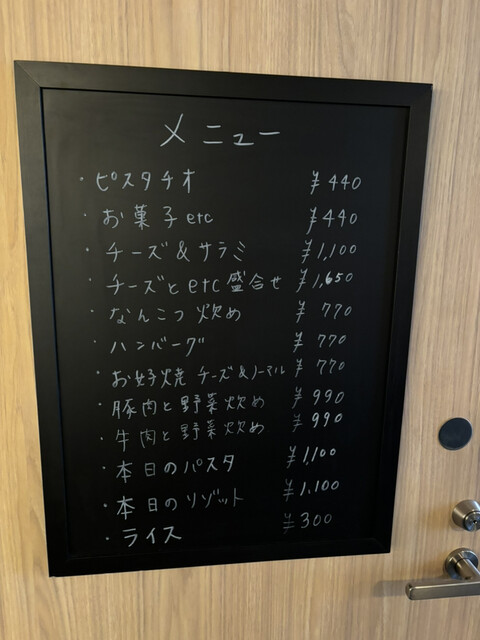 メニュー
・ピスタチオ ¥440
・お菓子etc ¥440
・チーズ&サラミ ¥1,100
・チーズとetc盛合せ ¥1,650
・なんこつ炒め ¥770
・ハンバーグ ¥770
・お好焼 チーズ&ノーマル ¥770
・豚肉と野菜炒め ¥990
・牛肉と野菜炒め ¥990
・本日のパスタ ¥1,100
・本日のリゾット ¥1,100
・ライス ¥300